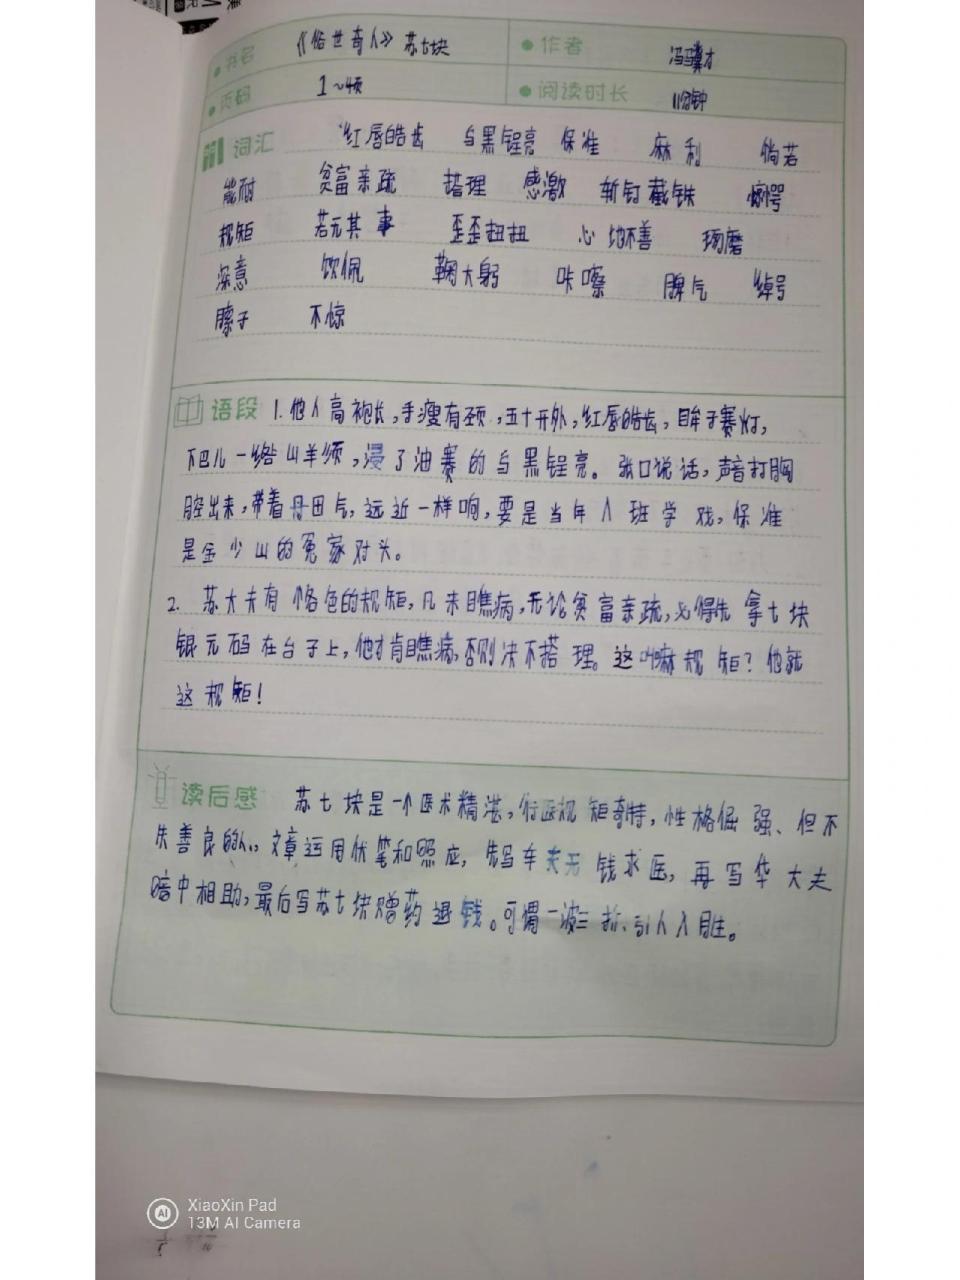 书名 《俗世奇人》苏七块 作者 冯骥才
页码 1~4页 阅读时长 11分钟
词汇 红唇皓齿 乌黑锃亮 保准 麻利 倘若
能耐 贫富亲疏 搭理 感激 斩钉截铁 惊愕
规矩 若无其事 歪歪扭扭 心地不善 琢磨
深意 钦佩 鞠大躬 咔嚓 脾气 绰号
膀子 不惊
语段 1.他人高袍长,手瘦有颈,五十开外,红唇皓齿,眸子赛灯,
下巴儿一绺山羊须,浸了油赛的乌黑锃亮。张口说话,声音打胸
腔出来,带着丹田气,远近一样响,要是当年入班学戏,保准
是金少山的冤家对头。
2. 苏大夫有格色的规矩,凡来瞧病,无论贫富亲疏,必得先拿七块
银元码在台子上,他才肯瞧病,否则决不搭理。这叫嘛规矩?他就
这规矩!
读后感 苏七块是一个医术精湛,行医规矩奇特,性格倔强、但不
失善良的人。文章运用伏笔和照应,先写车夫无钱求医,再写华大夫
暗中相助,最后写苏七块赠药退钱。可谓一波三折、引人入胜。
AI
XiaoXin Pad
13M AI Camera